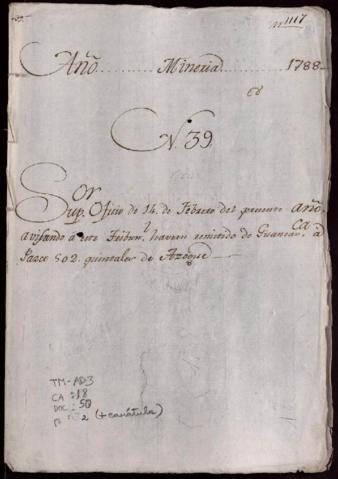 nº 1117
Año ......... Mineria ......... 1788
68
N. 39
Sor
Sup. Oficio de 14 de Febrero del presente año,
avisando á este Tribunl. haverse remitido de Guancavca. á
Pasco 502 quintales de Azogue
TM-AD3
CA : 18
DOC : 50
2 (+ carátula)